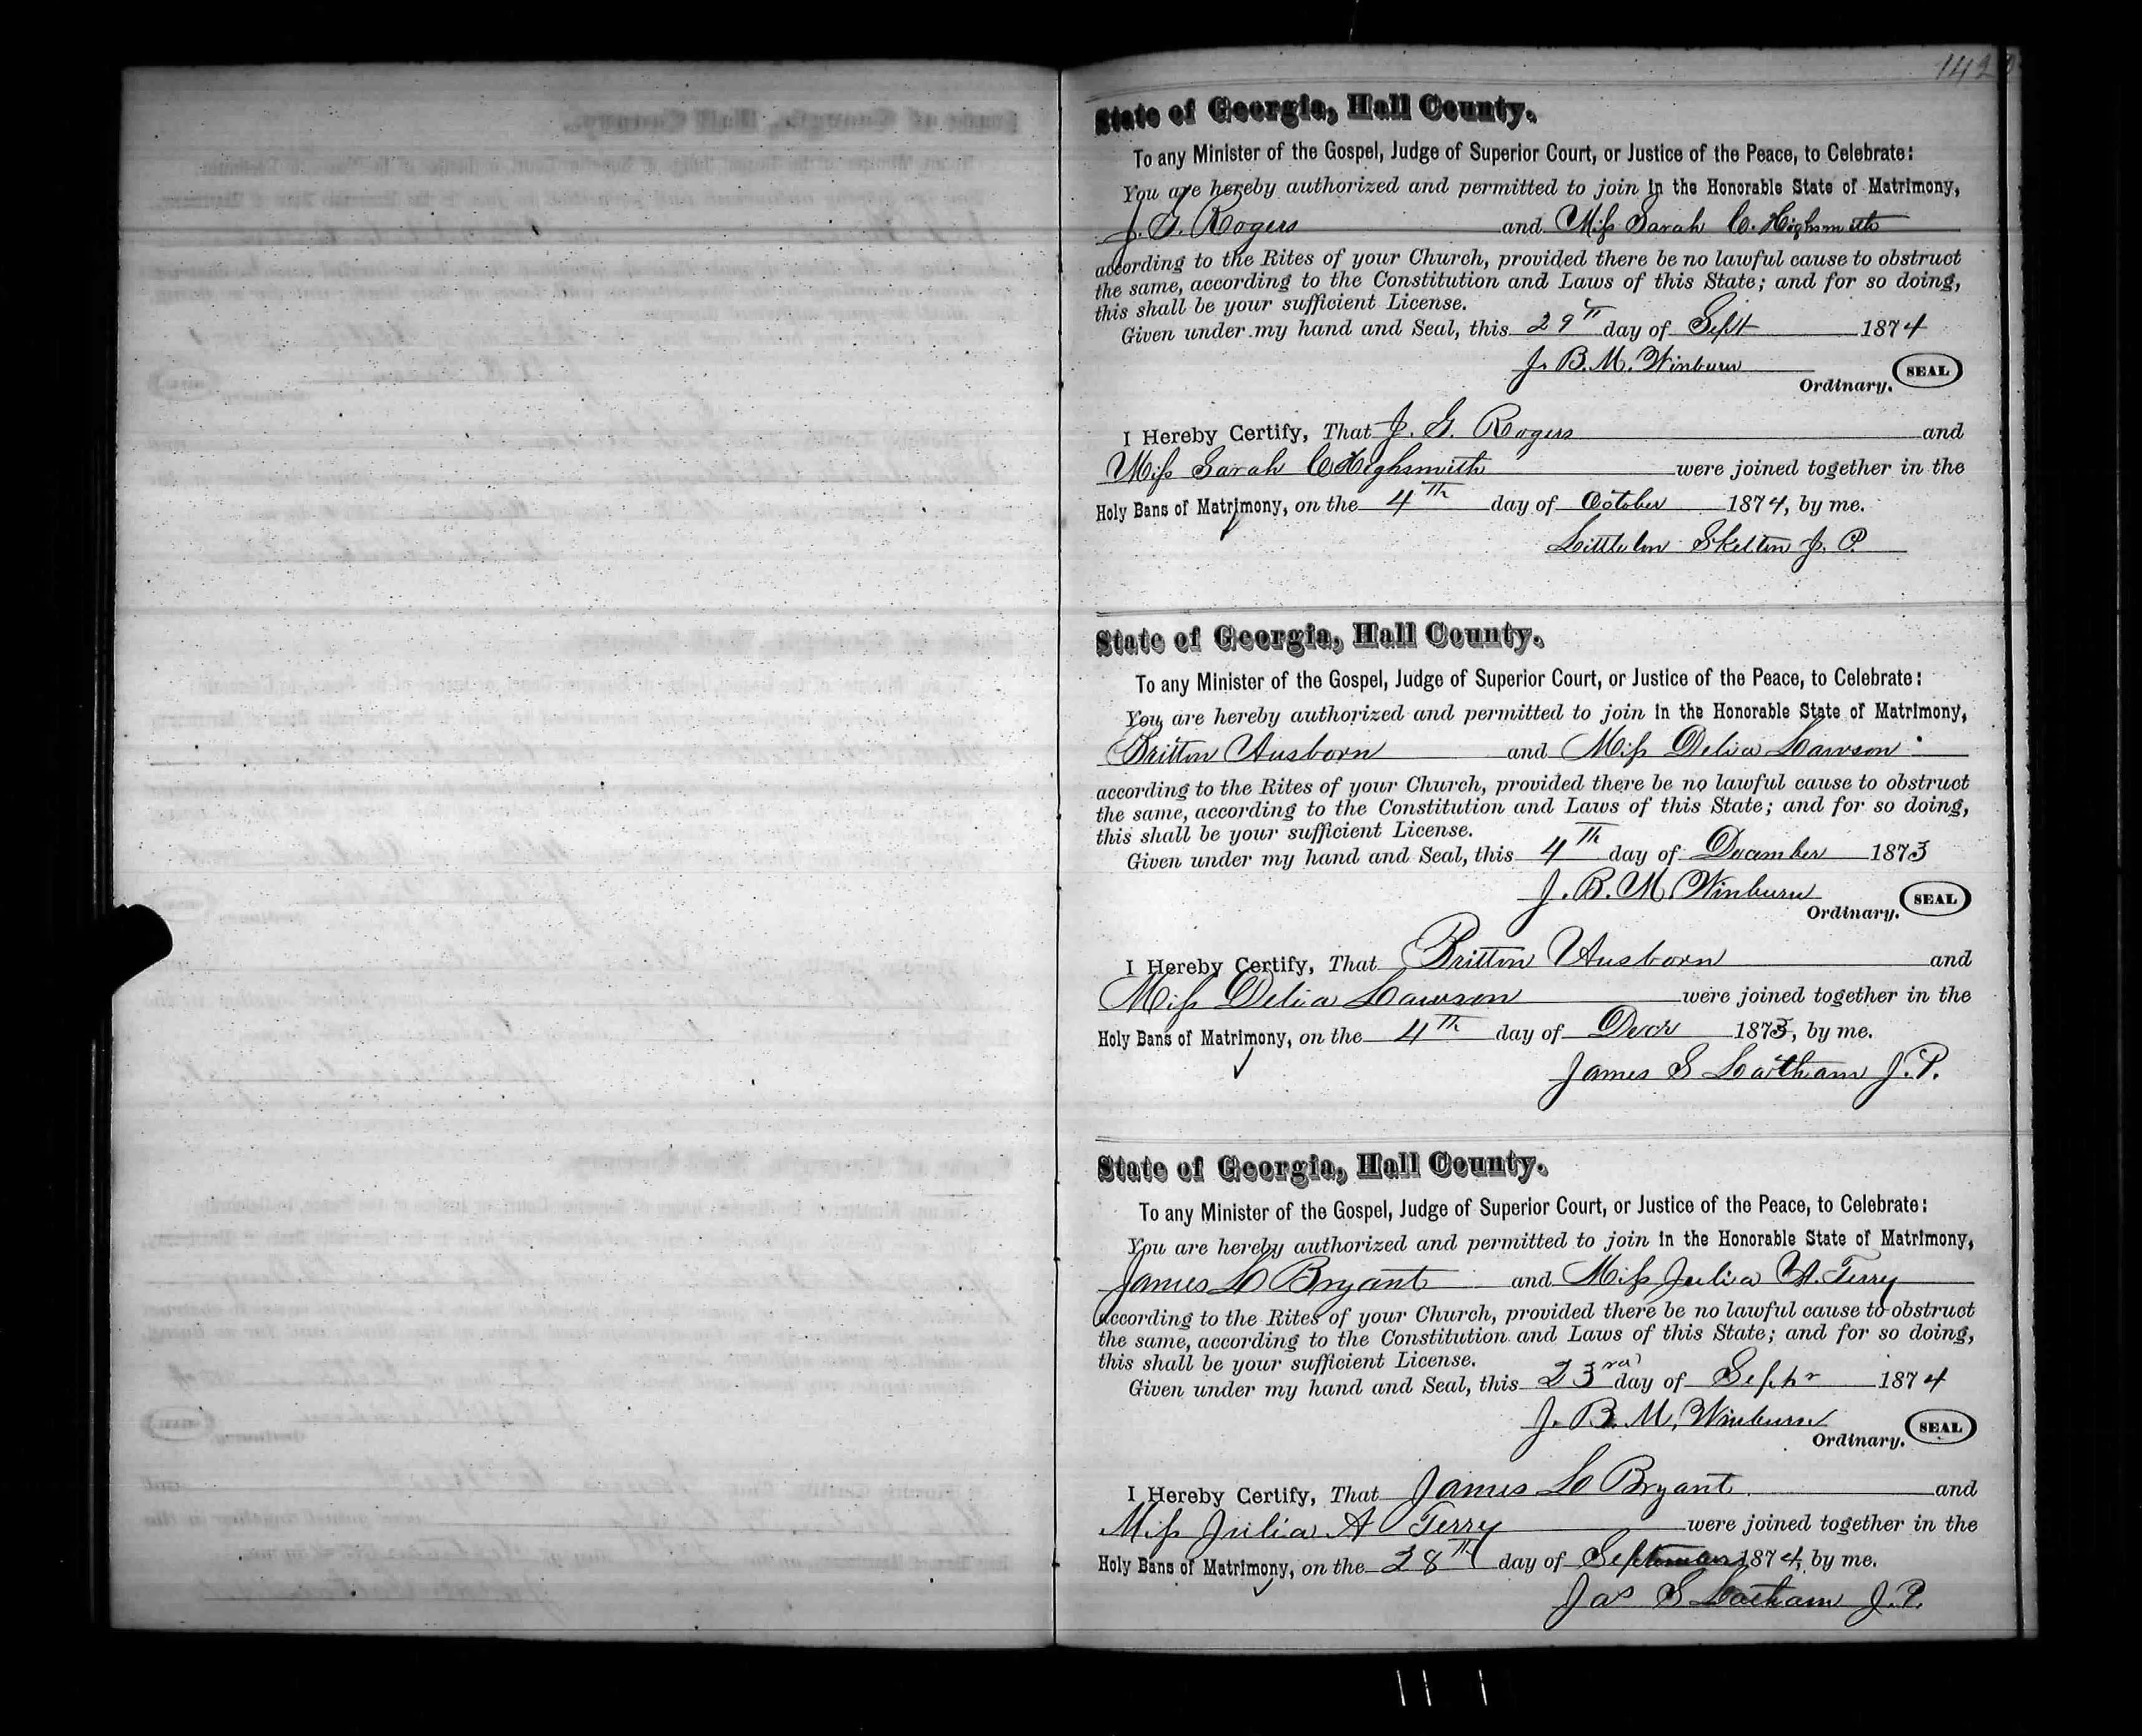 142
State of Georgia, Hall County.
To any Minister of the Gospel, Judge of Superior Court, or Justice of the Peace, to Celebrate:
You are hereby authorized and permitted to join in the Honorable State of Matrimony,
J. G. Rogers and Miss Sarah C. Highsmith
according to the Rites of your Church, provided there be no lawful cause to obstruct
the same, according to the Constitution and Laws of this State; and for so doing,
this shall be your sufficient License.
Given under my hand and Seal, this 29th day of Sept 1874
J. B. M. Winburn
Ordinary. SEAL
I Hereby Certify, That J. G. Rogers and
Miss Sarah C Highsmith were joined together in the
Holy Bans of Matrimony, on the 4th day of October 1874, by me.
Littleton Skelton J. P.
State of Georgia, Hall County.
To any Minister of the Gospel, Judge of Superior Court, or Justice of the Peace, to Celebrate:
You are hereby authorized and permitted to join in the Honorable State of Matrimony,
Britton Ausborn and Miss Delia Lawson
according to the Rites of your Church, provided there be no lawful cause to obstruct
the same, according to the Constitution and Laws of this State; and for so doing,
this shall be your sufficient License.
Given under my hand and Seal, this 4th day of December 1873
J. B. M. Winburn
Ordinary. SEAL
I Hereby Certify, That Britton Ausborn and
Miss Delia Lawson were joined together in the
Holy Bans of Matrimony, on the 4th day of Decr 1873, by me.
James S Latham J.P.
State of Georgia, Hall County.
To any Minister of the Gospel, Judge of Superior Court, or Justice of the Peace, to Celebrate:
You are hereby authorized and permitted to join in the Honorable State of Matrimony,
James L Bryant and Miss Julia A. Terry
according to the Rites of your Church, provided there be no lawful cause to obstruct
the same, according to the Constitution and Laws of this State; and for so doing,
this shall be your sufficient License.
Given under my hand and Seal, this 23rd day of Septr 1874
J. B. M. Winburn
Ordinary. SEAL
I Hereby Certify, That James L Bryant and
Miss Julia A Terry were joined together in the
Holy Bans of Matrimony, on the 28th day of September 1874, by me.
Jas S Latham J.P.